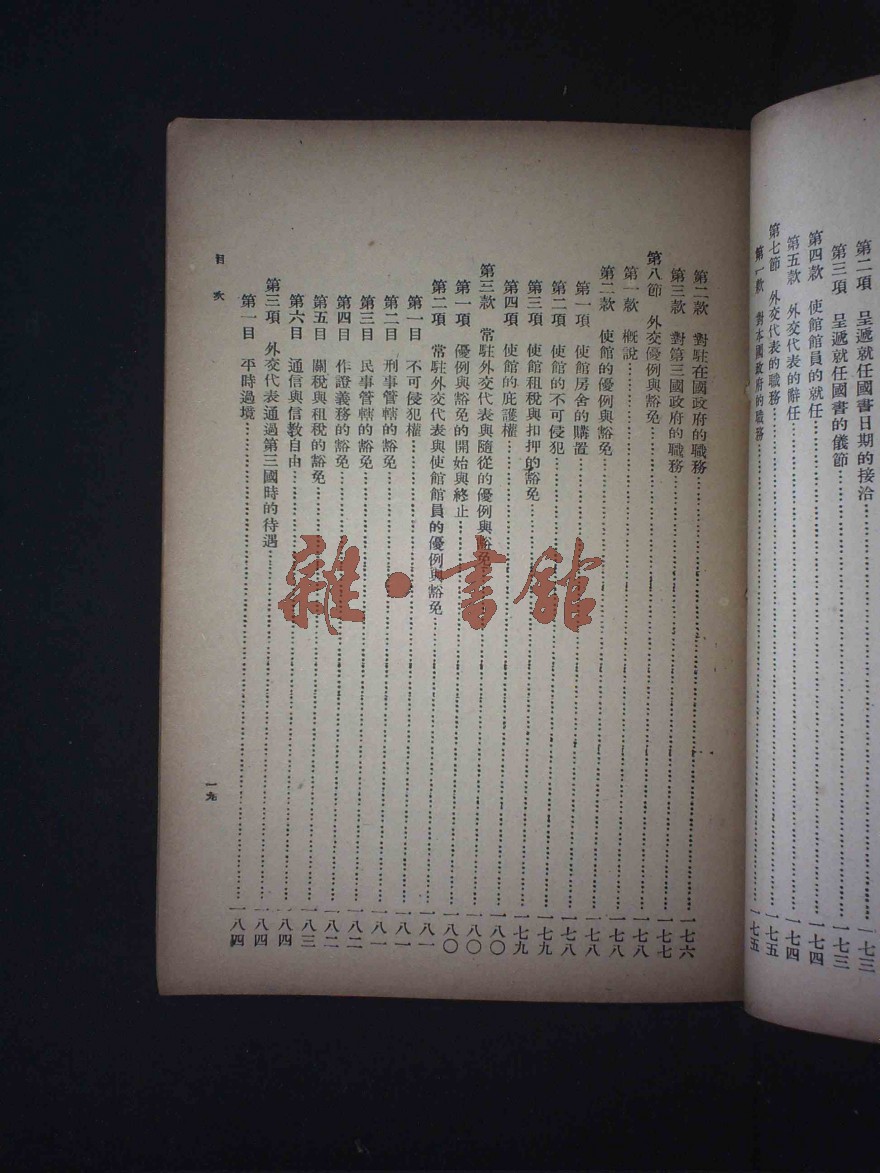 第二項 呈遞就任國書日期的接洽……一七三
第三項 呈遞就任國書的儀節……一七三
第四款 使館館員的就任……一七四
第五款 外交代表的辭任……一七四
第七節 外交代表的職務……一七五
第一款 對本國政府的職務……一七五
第二款 對駐在國政府的職務……一七六
第三款 對第三國政府的職務……一七七
第八節 外交優例與豁免……一七八
第一款 概說……一七八
第二款 使館的優例與豁免……一七八
第一項 使館房舍的購置……一七八
第二項 使館的不可侵犯……一七九
第三項 使館租稅與扣押的豁免……一七九
第四項 使館的庇護權……一八〇
第三款 常駐外交代表與隨從的優例與豁免……一八〇
第一項 優例與豁免的開始與終止……一八〇
第二項 常駐外交代表與使館館員的優例與豁免……一八一
第一目 不可侵犯權……一八一
第二目 刑事管轄的豁免……一八一
第三目 民事管轄的豁免……一八二
第四目 作證義務的豁免……一八二
第五目 關稅與租稅的豁免……一八三
第六目 通信與信教自由……一八四
第三項 外交代表通過第三國時的待遇……一八四
第一目 平時過境……一八四
目次
一九
雜·書館